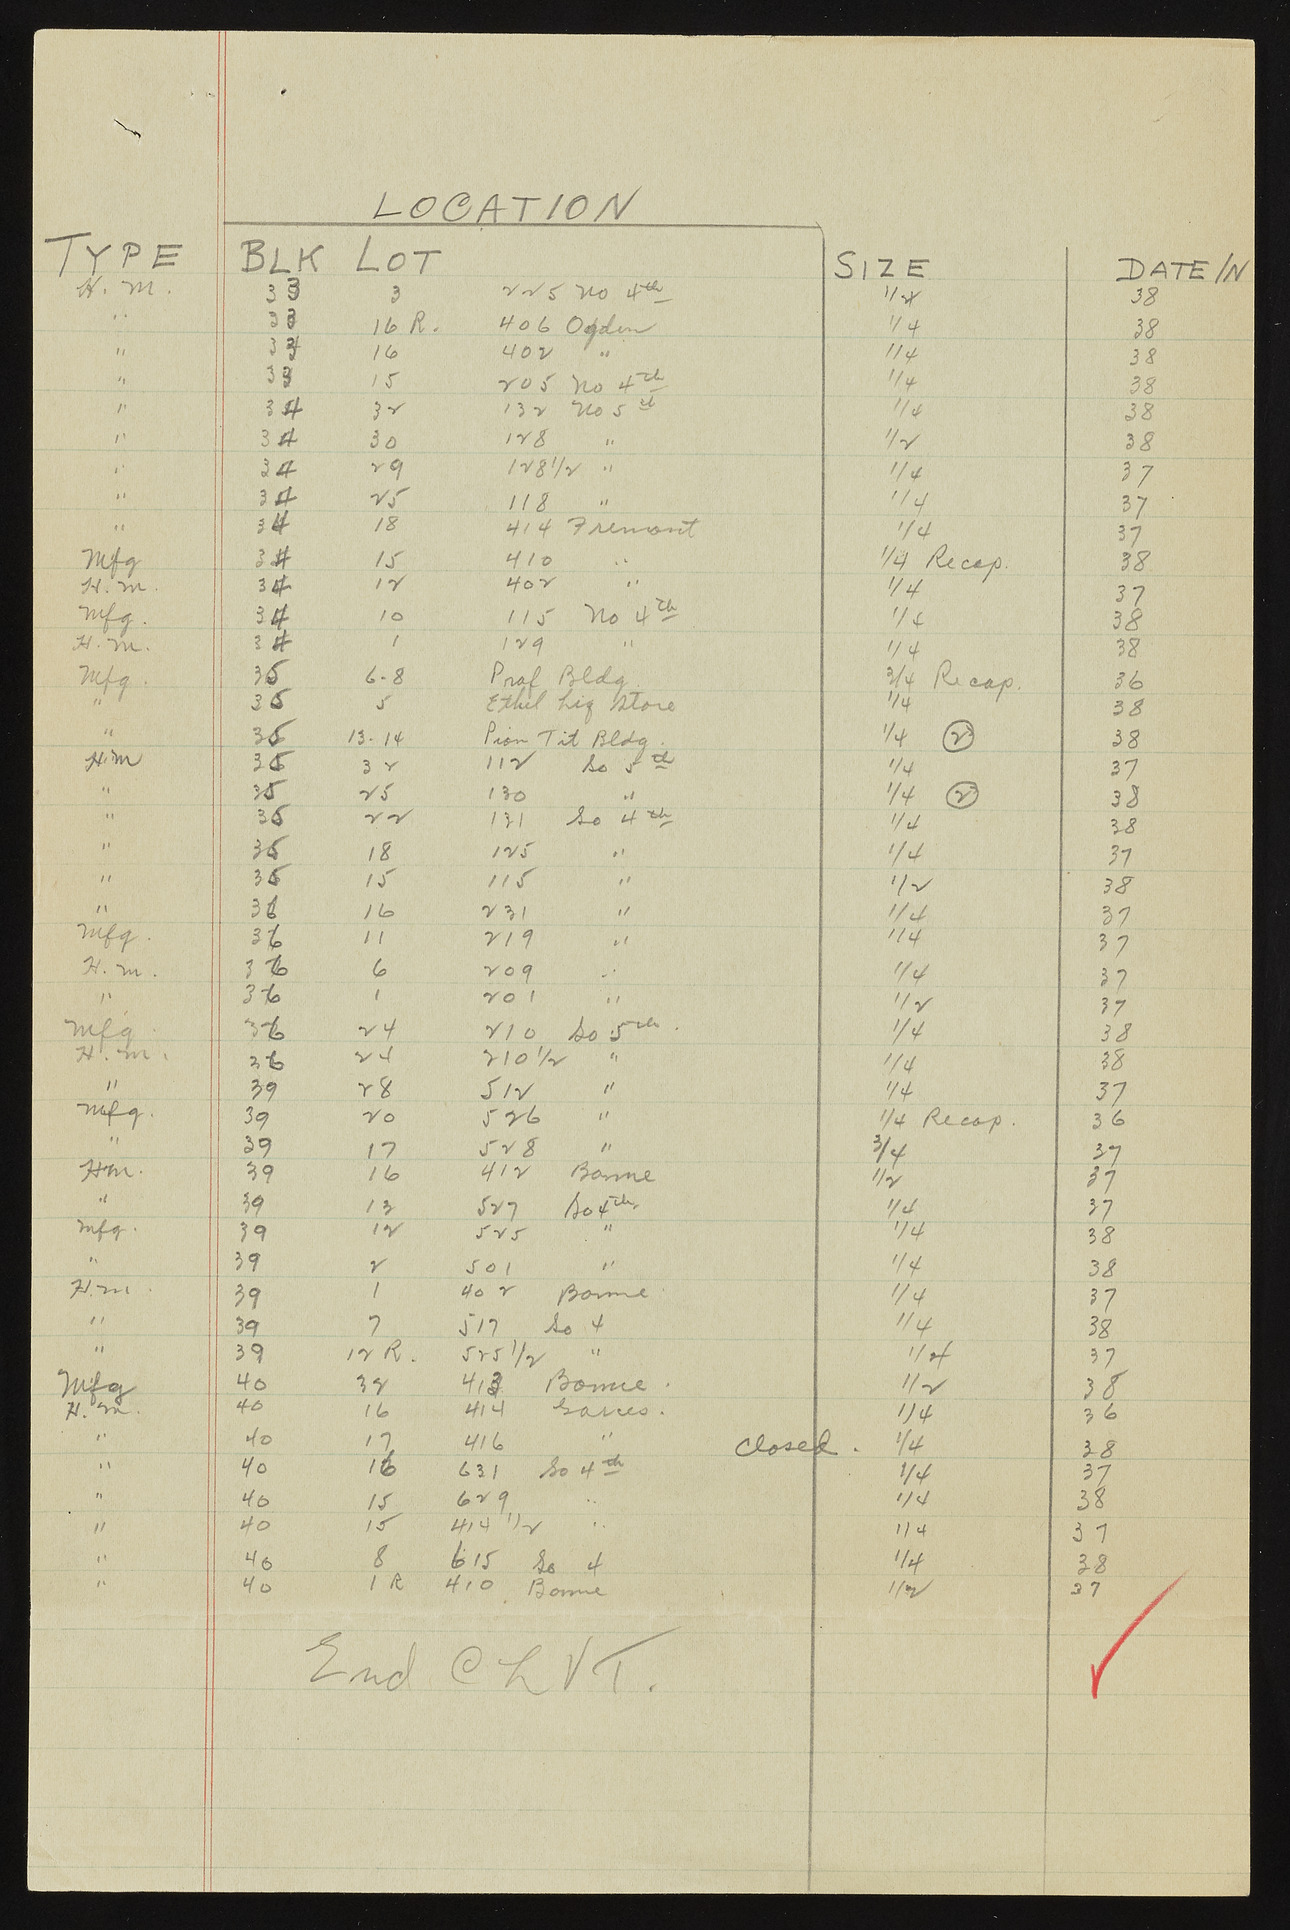 LOCATION
TYPE BLK LOT SIZE DATE/N
H. M. 33 3 225 No 4th 1/2 38
" 33 16 R. 406 Ogden 1/4 38
" 33 16 402 " 1/4 38
" 33 15 205 No 4th 1/4 38
" 34 32 132 No 5th 1/4 38
" 34 30 128 " 1/2 38
" 34 29 128 1/2 " 1/4 37
" 34 25 118 " 1/4 37
" 34 18 414 Fremont 1/4 37
Mfg 34 15 410 " 1/4 Recap. 38
H. M. 34 12 402 " 1/4 37
Mfg. 34 10 115 No 4th 1/4 38
H. M. 34 1 129 " 1/4 38
Mfg. 35 6-8 Prof Bldg. 3/4 Recap. 36
" 35 5 Ethel Liq Store 1/4 38
" 35 13-14 Pion Tit Bldg. 1/4 2 38
H.M 35 32 112 So 5th 1/4 37
" 35 25 130 " 1/4 2 38
" 35 22 131 So 4th 1/4 38
" 35 18 125 " 1/4 37
" 35 15 115 " 1/2 38
" 36 16 231 " 1/4 37
Mfg. 36 11 219 " 1/4 37
H. M. 36 6 209 " 1/4 37
" 36 1 201 " 1/2 37
Mfg. 36 24 210 So 5th. 1/4 38
H. M. 36 24 210 1/2 " 1/4 38
" 39 28 512 " 1/4 37
Mfg. 39 20 526 " 1/4 Recap. 36
" 39 17 528 " 3/4 37
HM. 39 16 412 Bonne 1/2 37
" 39 13 527 So 4th 1/4 37
Mfg. 39 12 525 " 1/4 38
" 39 2 501 " 1/4 38
H.M. 39 1 402 Bonne 1/4 37
" 39 7 517 So 4 1/4 38
" 39 12 R. 525 1/2 " 1/4 37
Mfg 40 32 413 Bonne. 1/2 38
H. M. 40 16 414 Garces. 1/4 36
" 40 17 416 " Closed. 1/4 38
" 40 16 631 So 4th 1/4 37
" 40 15 629 " 1/4 38
" 40 15 414 1/2 " 1/4 37
" 40 8 615 So 4 1/4 38
" 40 1 R 410 Bonne 1/2 37
End C L V T.